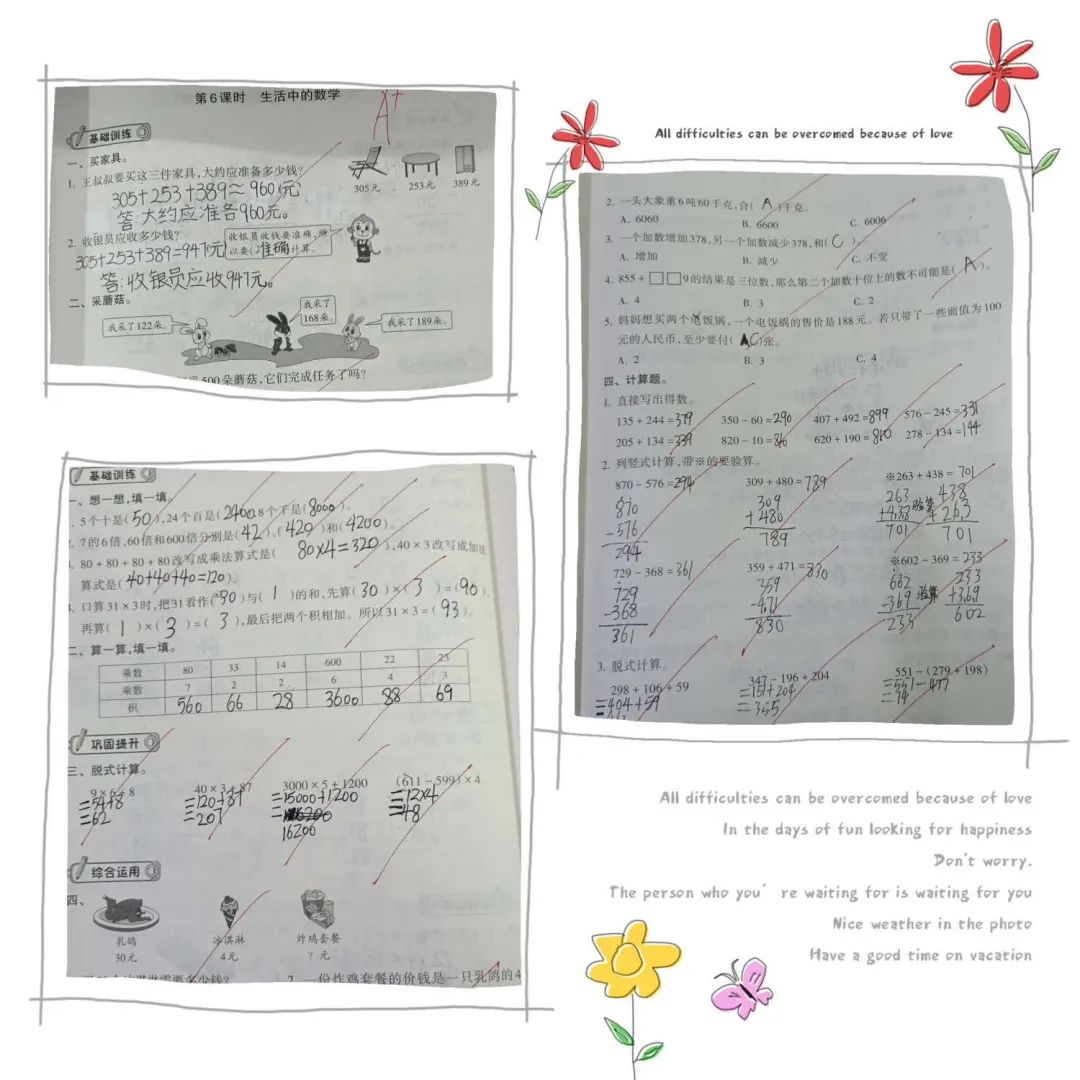 第6课时 生活中的数学
A+
基础训练
一、买家具。
1. 王叔叔要买这三件家具,大约应准备多少钱?
305+253+389≈960(元)
答:大约应准备960元。
305元 253元 389元
2. 收银员应收多少钱?
收银员收钱要准确,所
以要(准确)计算。
305+253+389=947(元)
答:收银员应收947元。
二、采蘑菇。
我采了122朵。
我采了
168朵。
我采了189朵。
500朵蘑菇,它们完成任务了吗?
All difficulties can be overcomed because of love
2. 一头大象重6吨60千克,合( A )千克。
A. 6060 B. 6600 C. 6006
3. 一个加数增加378,另一个加数减少378,和( C )。
A. 增加 B. 减少 C. 不变
4. 855+□□9的结果是三位数,那么第二个加数十位上的数不可能是( A )。
A. 4 B. 3 C. 2
5. 妈妈想买两个电饭锅,一个电饭锅的售价是188元。若只带了一些面值为100
元的人民币,至少要付( C )张。
A. 2 B. 3 C. 4
四、计算题。
1. 直接写出得数。
135+244=379 350-60=290 407+492=899 576-245=331
205+134=339 820-10=810 620+190=810 278-134=144
2. 列竖式计算,带※的要验算。
870-576=294 309+480=789 ※263+438=701
870 309 263 验算 438
-576 +480 +438 +263
294 789 701 701
729-368=361 359+471=830 ※602-369=233
729 359 602 验算 233
-368 +471 -369 +369
361 830 233 602
3. 脱式计算。
298+106+59 347-196+204 551-(279+198)
=404+59 =151+204 =551-477
=355 =74
基础训练
一、想一想,填一填。
5个十是(50),24个百是(2400),8个千是(8000)。
7的6倍、60倍和600倍分别是(42)、(420)和(4200)。
80+80+80+80改写成乘法算式是( 80×4=320 ),40×3改写成加法
算式是( 40+40+40=120 )。
口算31×3时,把31看作(30)与( 1 )的和,先算(30)×( 3 )=(90),
再算( 1 )×( 3 )=( 3 ),最后把两个积相加。所以31×3=(93)。
二、算一算,填一填。
乘数 80 33 14 600 22 23
乘数 7 2 2 6 4 3
积 560 66 28 3600 88 69
巩固提升
三、脱式计算。
9×6+8 40×3+87 3000×5+1200 (611-599)×4
=54+8 =120+87 =15000+1200 =12×4
=62 =207 = =48
16200
综合运用
四、
乳鸽 冰淇淋 炸鸡套餐
30元 4元 ?元
需要多少钱? 2. 一份炸鸡套餐的价钱是一只乳鸽的4
All difficulties can be overcomed because of love
In the days of fun looking for happiness
Don't worry.
The person who you're waiting for is waiting for you
Nice weather in the photo
Have a good time on vacation